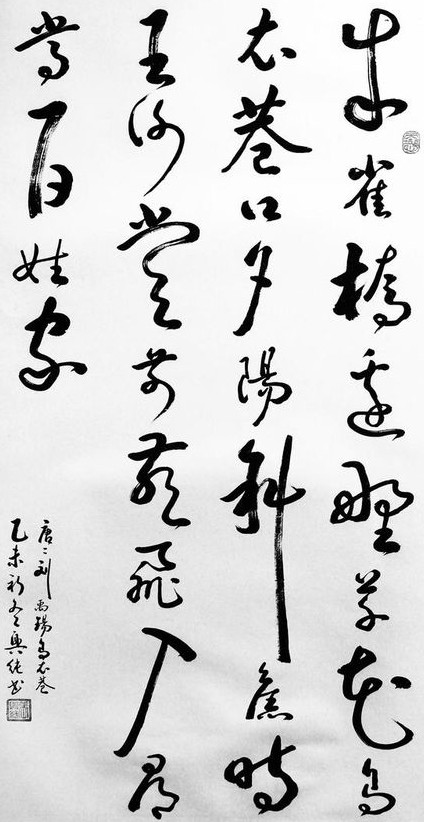 朱雀橋邊野草花烏
衣巷口夕陽斜舊時
王謝堂前燕飛入尋
常百姓家
唐刘禹錫烏衣巷
乙未初冬興純书